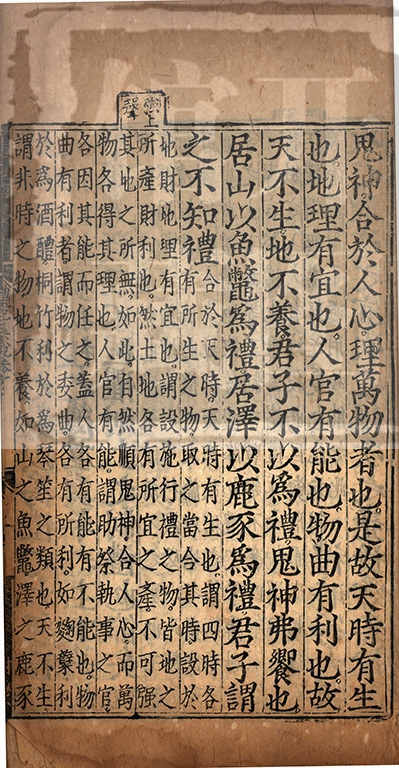 上
聲
鬼神合於人心理萬物者也是故天時有生
也地理有宜也人官有能也物曲有利也故
天不生地不養君子不以爲禮鬼神弗饗也
居山以魚鼈爲禮居澤以鹿豕爲禮君子謂
之不知禮
合於天時天時有生也謂四時各
有所生之物取之當合其時設於
地財地理有宜也謂設施行禮之物皆地之
所產財利也然土地各有所宜之產不可强
其地之所無如此自然順鬼神合人心而萬
物各得其理也人官有能謂助祭執事之官
各因其能而任之蓋人各有能有不能也物
曲有利者謂物之委曲各有所利如麴糵利
於爲酒醴桐竹利於爲琴笙之類也天不生
謂非時之物地不養如山之魚鼈澤之鹿豕